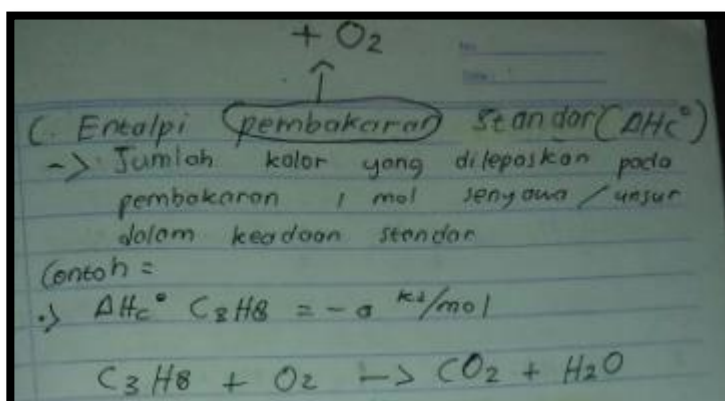 + O2
C. Entalpi pembakaran standar (ΔHc°)
-> Jumlah kalor yang dilepaskan pada
pembakaran 1 mol senyawa / unsur
dalam keadaan standar
Contoh =
•> ΔHc° C3H8 = - a kJ/mol
C3H8 + O2 -> CO2 + H2O